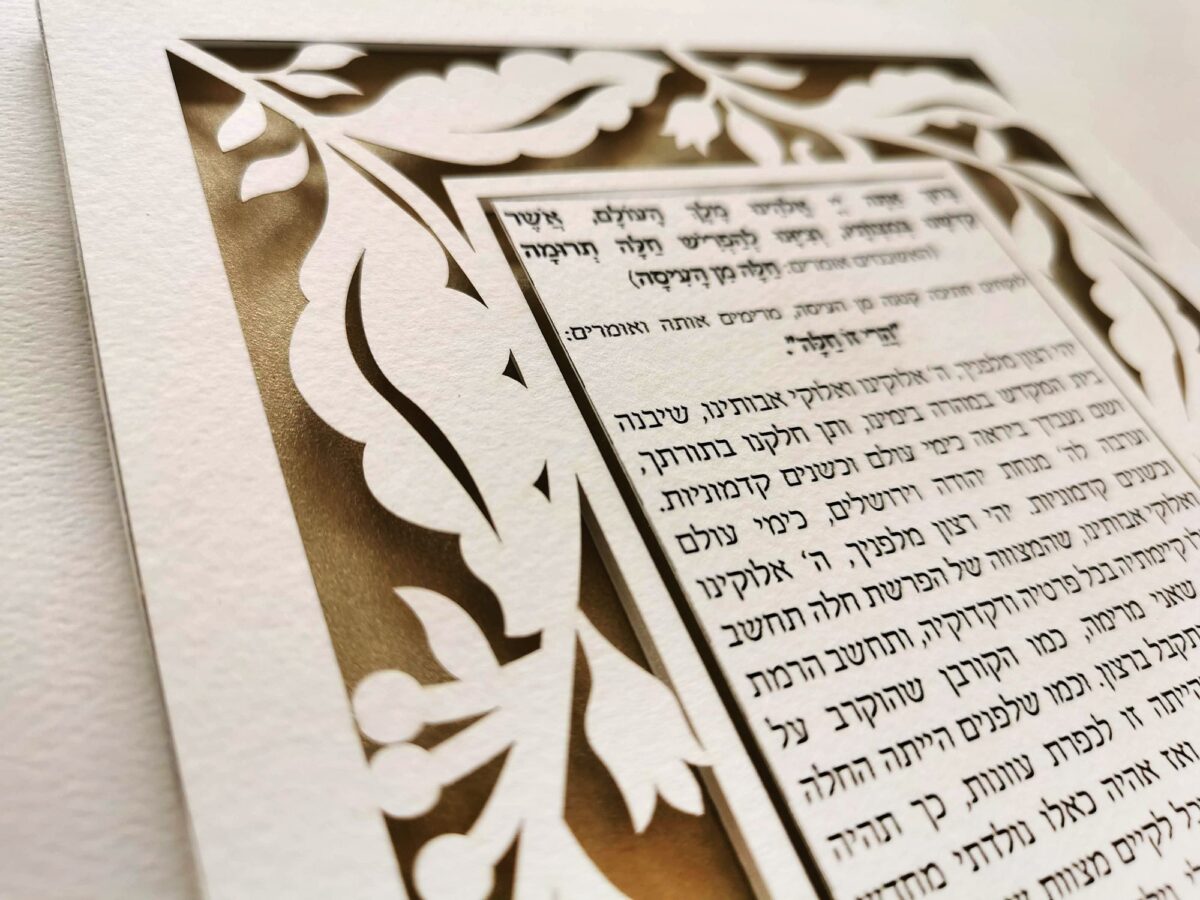 בָּרוּךְ אַתָּה יְיָ אֱלֹהֵינוּ מֶלֶךְ הָעוֹלָם, אֲשֶׁר
קִדְּשָׁנוּ בְּמִצְוֹתָיו, וְצִיוָּנוּ לְהַפְרִישׁ חַלָּה תְּרוּמָה
(האשכנזים אומרים: חַלָּה מִן הָעִיסָּה)
לוקחים חתיכה קטנה מן העיסה, מרימים אותה ואומרים:
"הֲרֵי זוֹ חַלָּה".
יהי רצון מלפניך, ה' אלוקינו ואלוקי אבותינו, שיבנה
בית המקדש במהרה בימינו, ותן חלקנו בתורתך,
ושם נעבדך ביראה כימי עולם וכשנים קדמוניות.
וערבה לה' מנחת יהודה וירושלים, כימי עולם
וכשנים קדמוניות. יהי רצון מלפניך, ה' אלוקינו
ואלוקי אבותינו, שהמצווה של הפרשת חלה תחשב
קיימתיה בכל פרטיה ודקדוקיה, ותחשב הרמת
שאני מרימה, כמו הקורבן שהוקרב על
תקבל ברצון. וכמו שלפנים הייתה החלה
הייתה זו לכפרת עוונות, כך תהיה
ואז אהיה כאלו נולדתי מחדש
לקיים מצוות